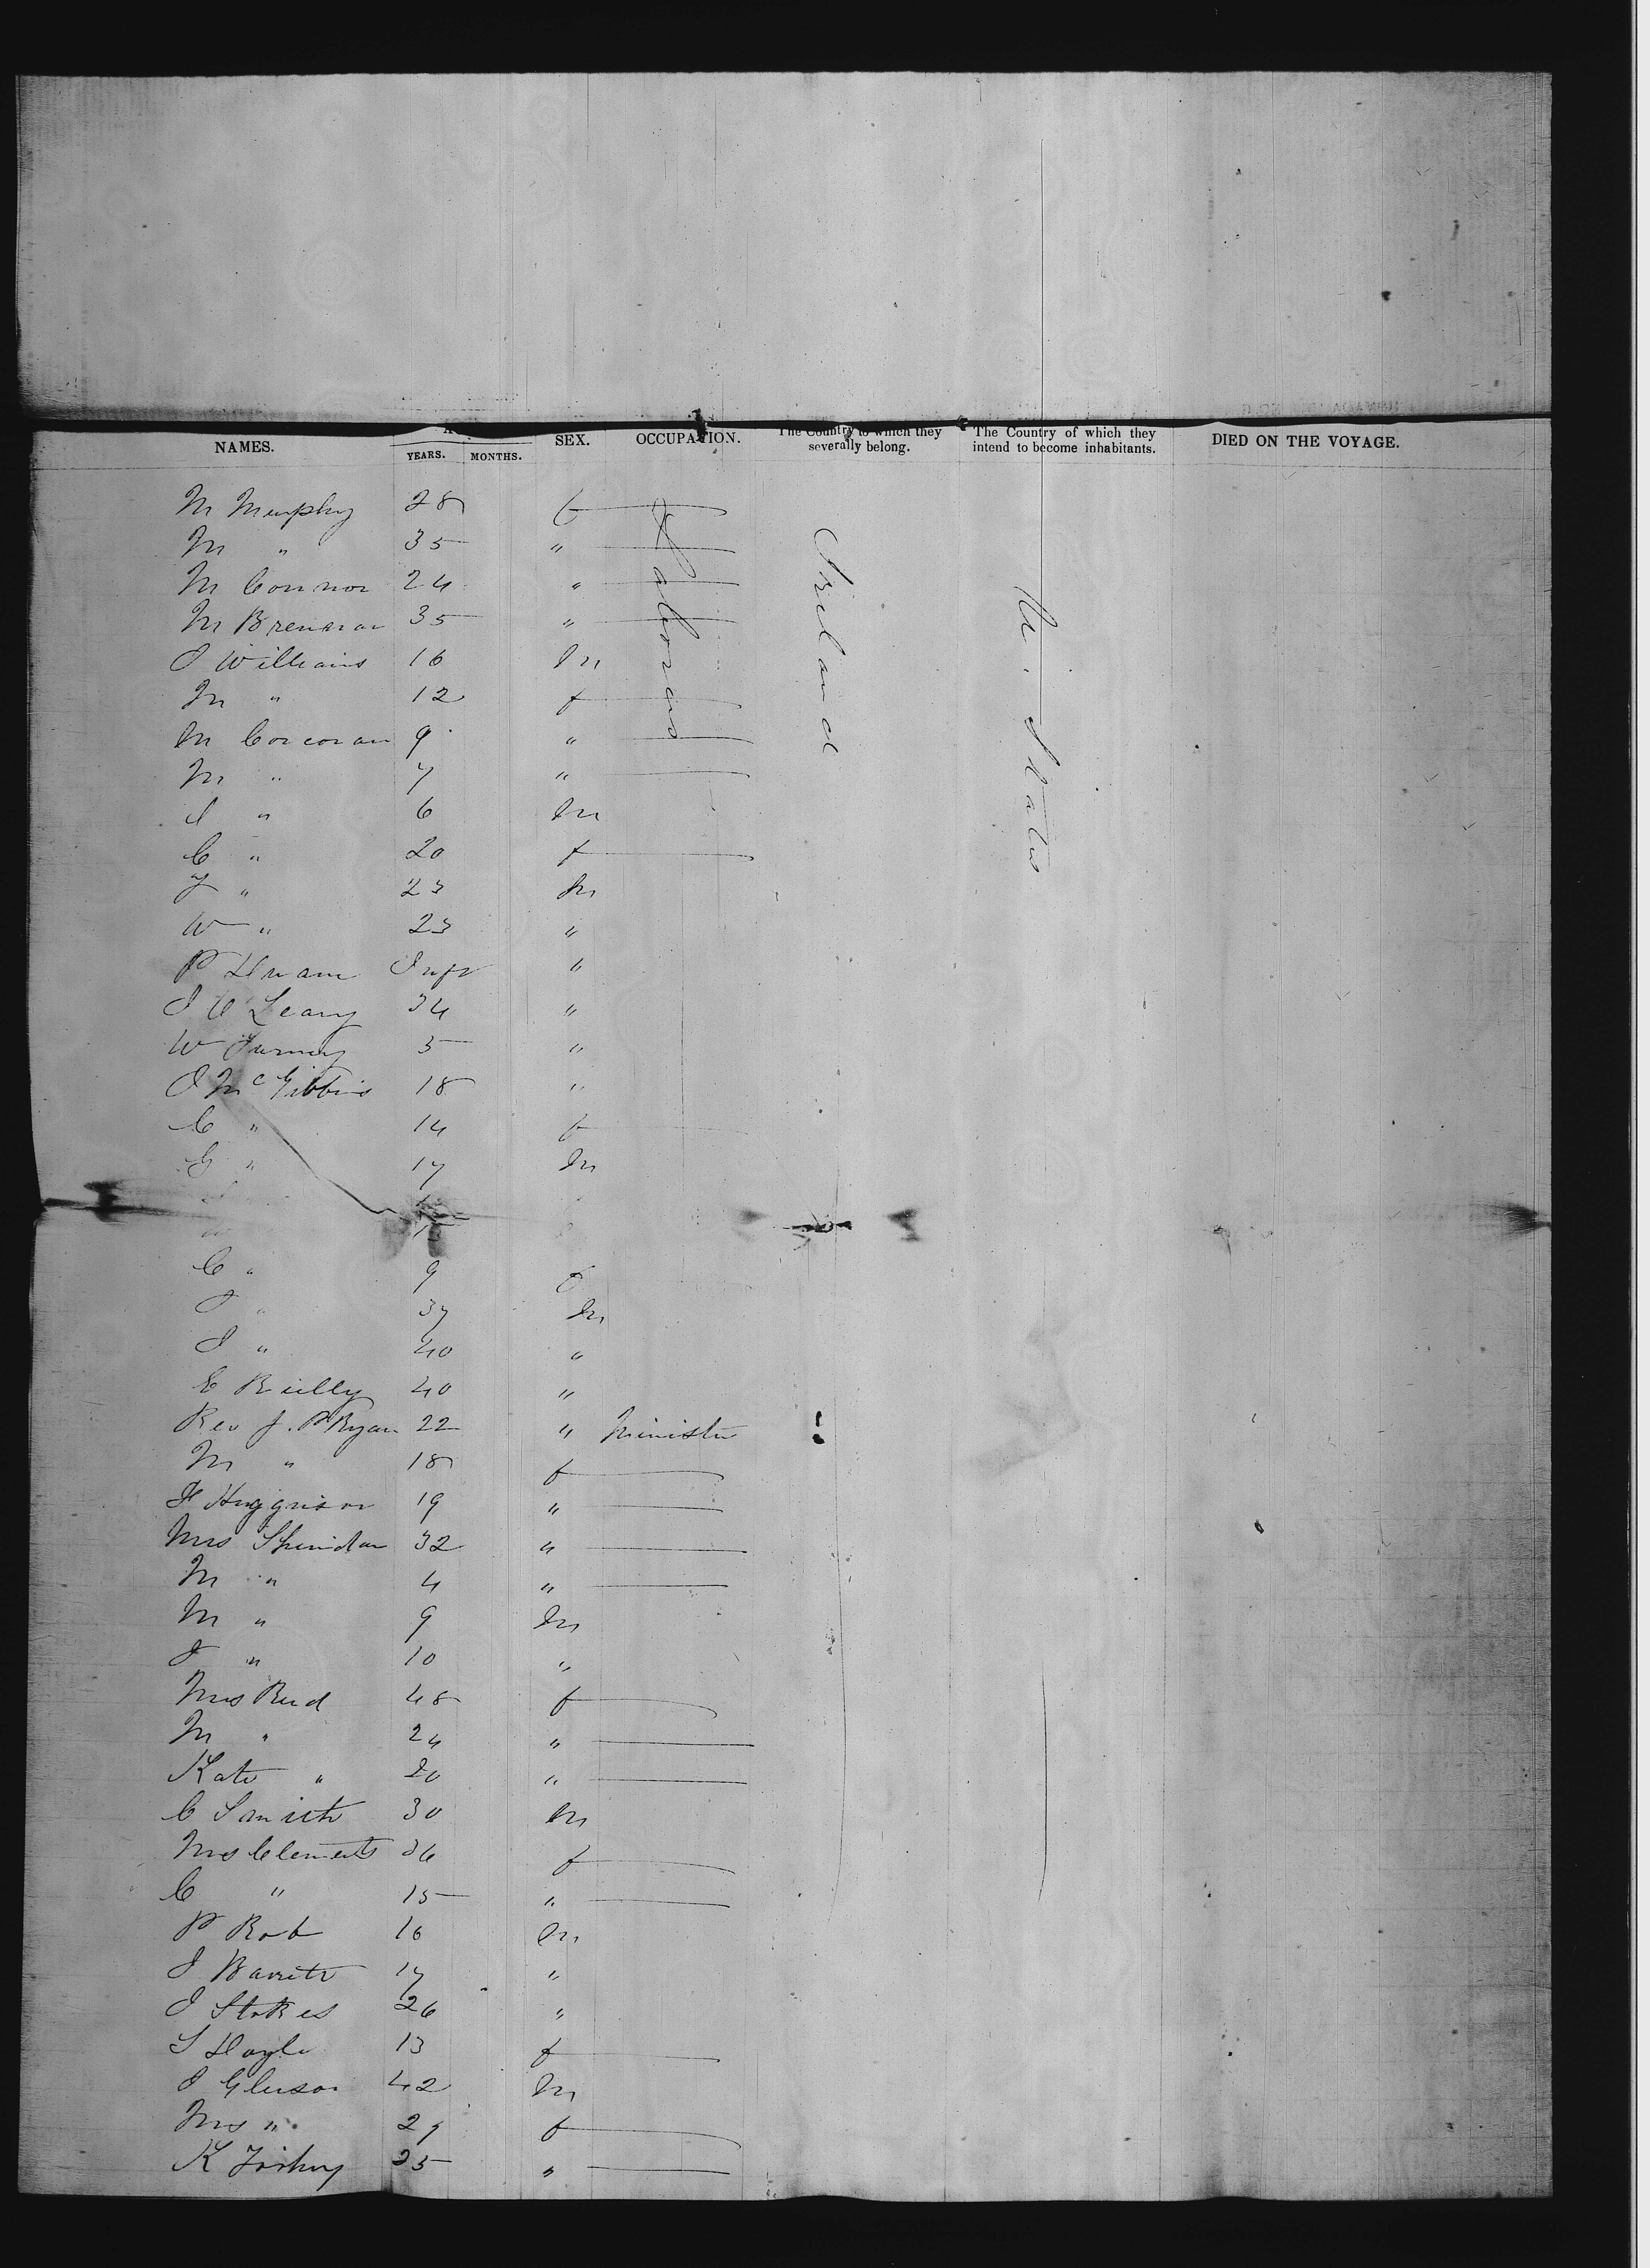 NAMES. YEARS. MONTHS. SEX. OCCUPATION. The Country to which they severally belong. The Country of which they intend to become inhabitants. DIED ON THE VOYAGE.
Laborers
Ireland
States
M Murphy 28 f
M " 35 "
M Connor 24 "
M Brennan 35 "
J Williams 16 M
M " 12 f
M Corcoran 9 "
M " 7 "
J " 6 M
C " 20 f
J " 23 M
W " 23 "
P Infr "
J O Leary 34 "
W 5 "
J McGibbins 18 "
C " 14 f
G " 17 M
C " 9 f
J " 37 M
J " 40 "
E Rielly 40 "
Rev J. P Ryan 22 " Minister
M " 18 f
F Higginson 19 "
Mrs Sheridan 32 "
M " 4 "
M " 9 M
J " 10 "
Mrs Reid 48 f
M " 24 "
Kate " 20 "
C Smith 30 M
Mrs Clements 36 f
C " 15 "
P Rob 16 M
J Barrett 17 "
J Stokes 26 "
S Doyle 13 f
J Gleeson 42 M
Mrs " 29 f
K 25 "